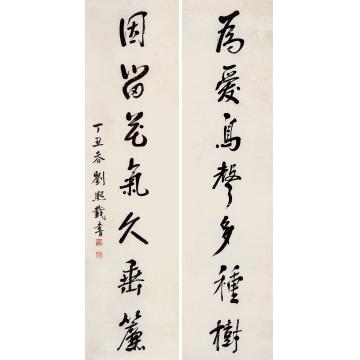 為愛鳥聲多種樹
因留花氣久垂簾
丁丑春劉熙載書